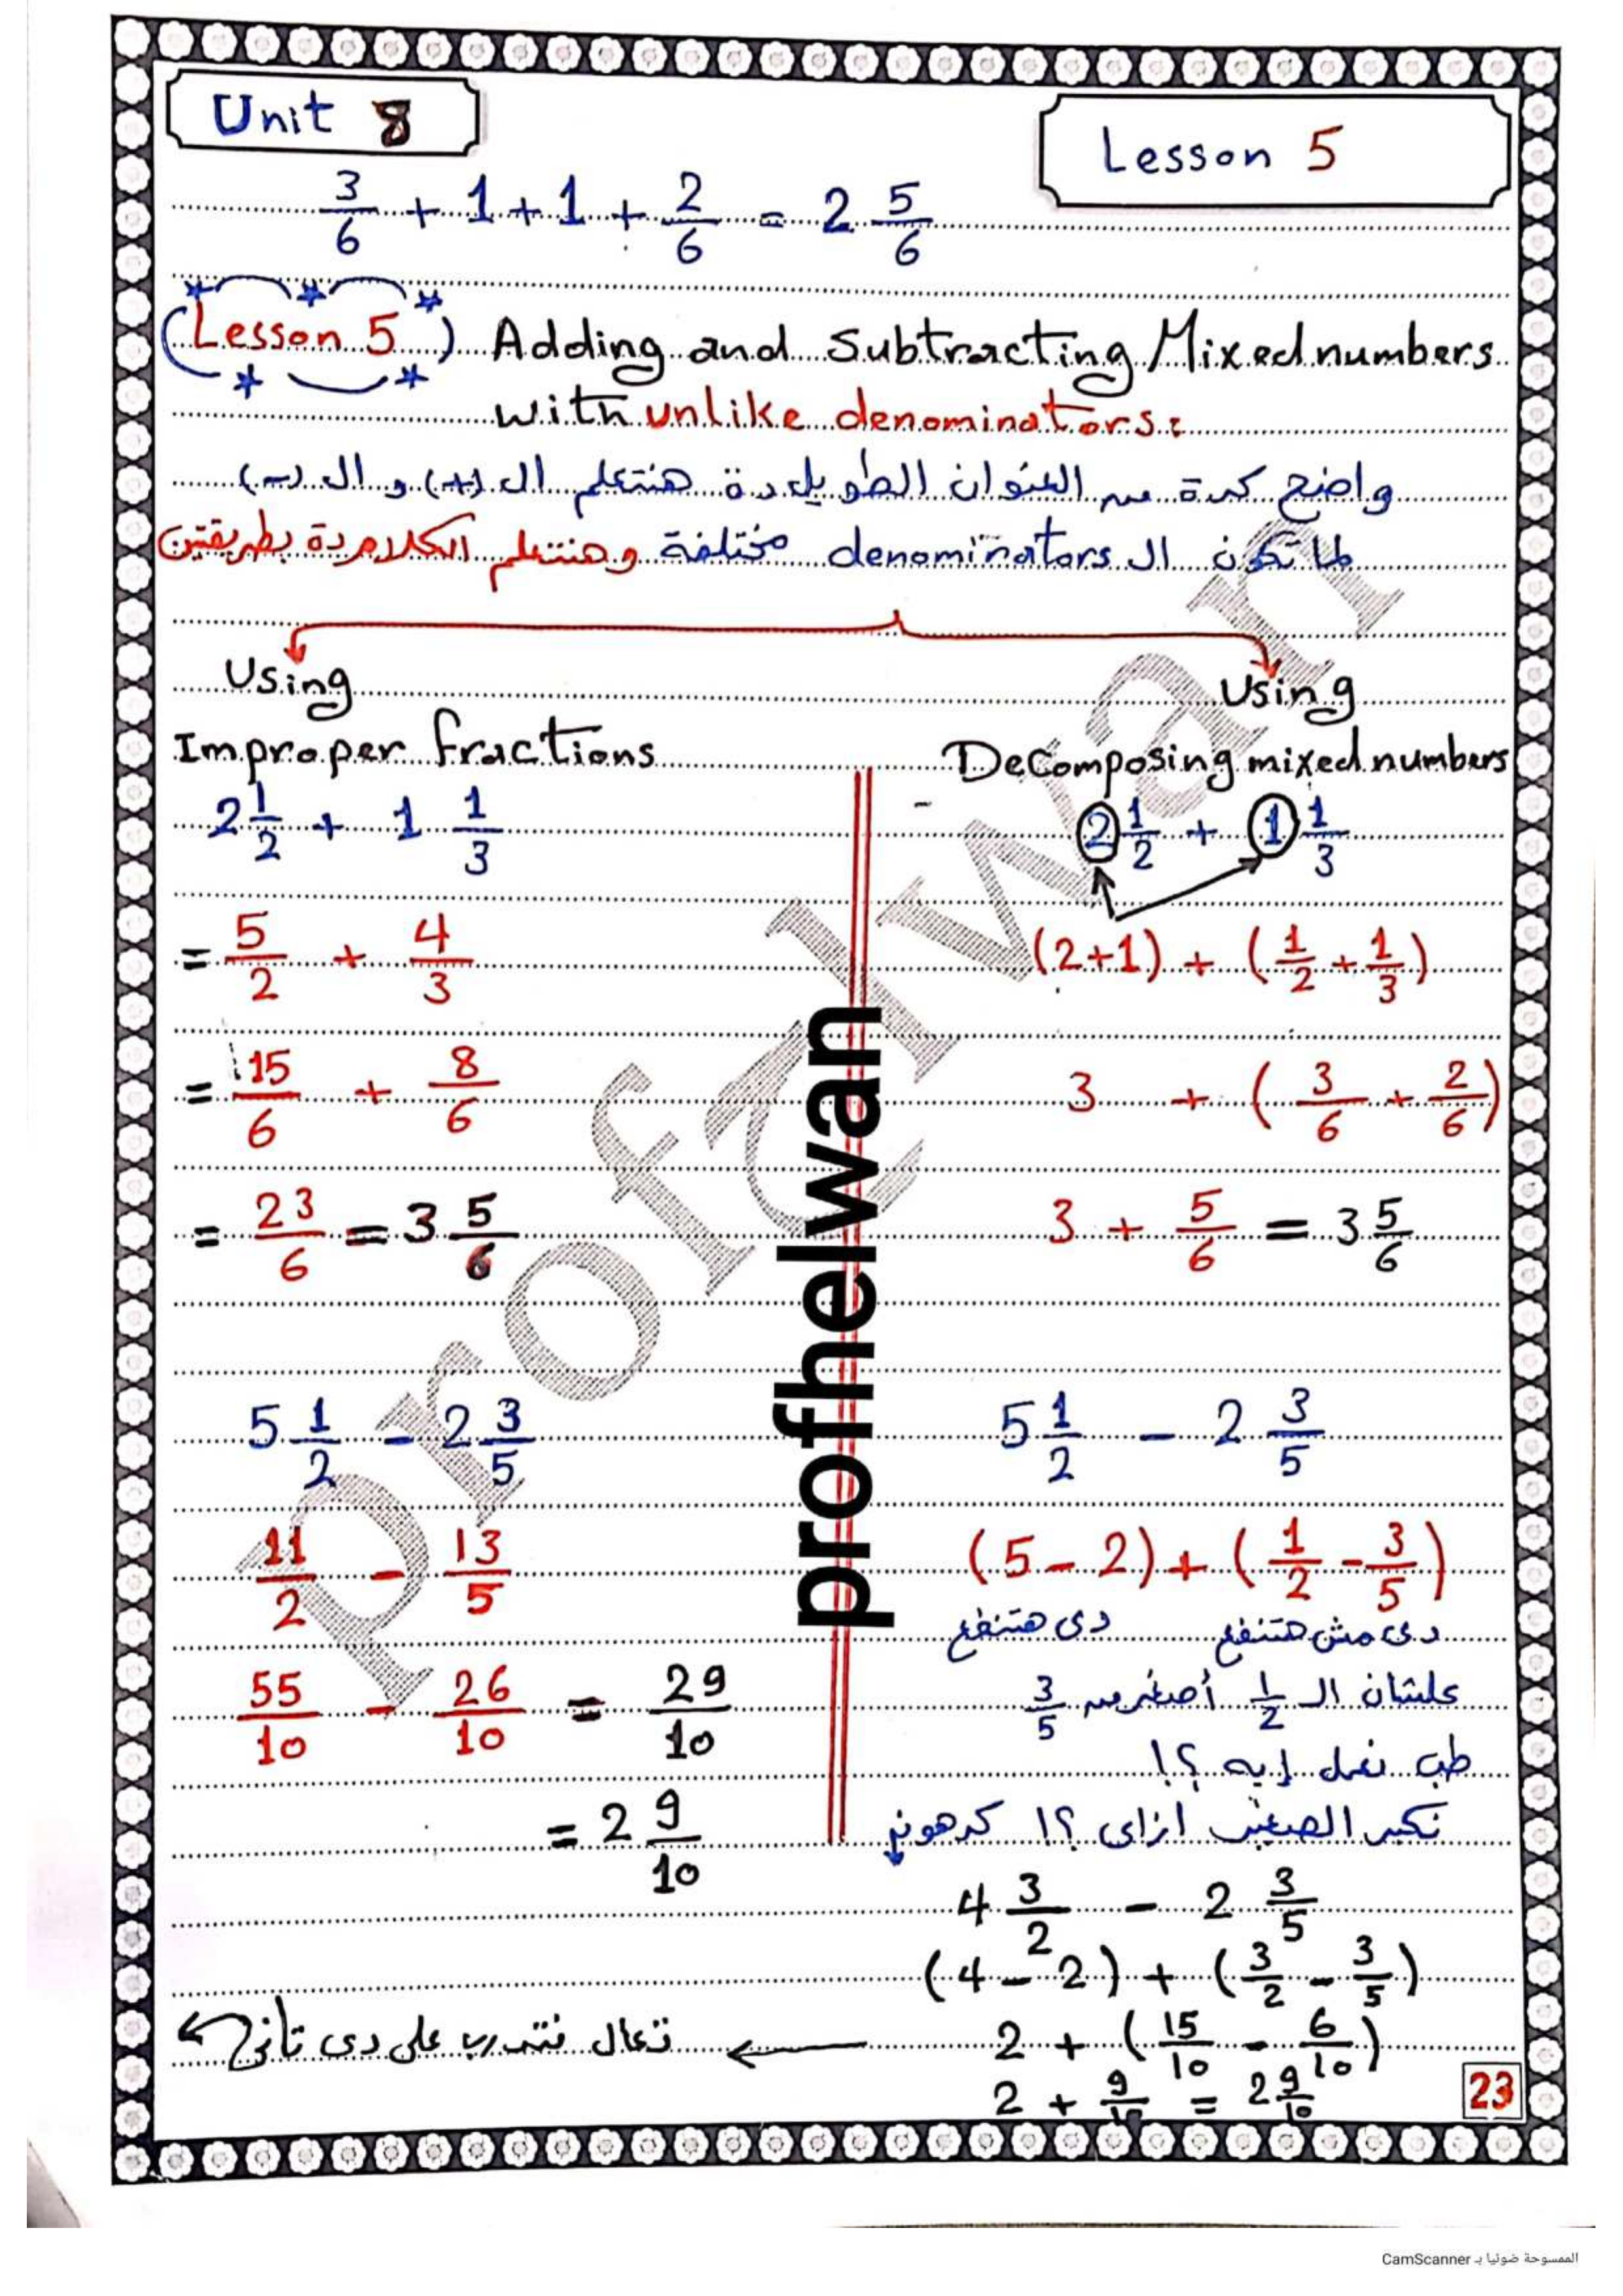 Unit 8
Lesson 5
3/6 + 1 + 1 + 2/6 = 2 5/6
(Lesson 5) Adding and Subtracting Mixed numbers
with unlike denominators:
واضح كدة من العنوان الطويل دة هنتعلم ال (+) و ال (-)
لما تكون ال denominators مختلفة وهنتعلم الكلام دة بطريقتين
Using
Improper fractions
2 1/2 + 1 1/3
= 5/2 + 4/3
= 15/6 + 8/6
= 23/6 = 3 5/6
5 1/2 - 2 3/5
11/2 - 13/5
55/10 - 26/10 = 29/10
= 2 9/10
Using
Decomposing mixed numbers
2 1/2 + 1 1/3
(2+1) + (1/2 + 1/3)
3 + (3/6 + 2/6)
3 + 5/6 = 3 5/6
5 1/2 - 2 3/5
(5 - 2) + (1/2 - 3/5)
دى مش هتنفع دى هتنفع
علشان ال 1/2 أصغر من 3/5
طب نعمل إيه ؟!
نكبر الصغير ازاى ؟! كدهون
4 3/2 - 2 3/5
(4 - 2) + (3/2 - 3/5)
2 + (15/10 - 6/10)
2 + 9/10 = 2 9/10
تعال نتدرب على دى تانى
23
profhelwan
Prof Helwan
الممسوحة ضوئيا بـ CamScanner